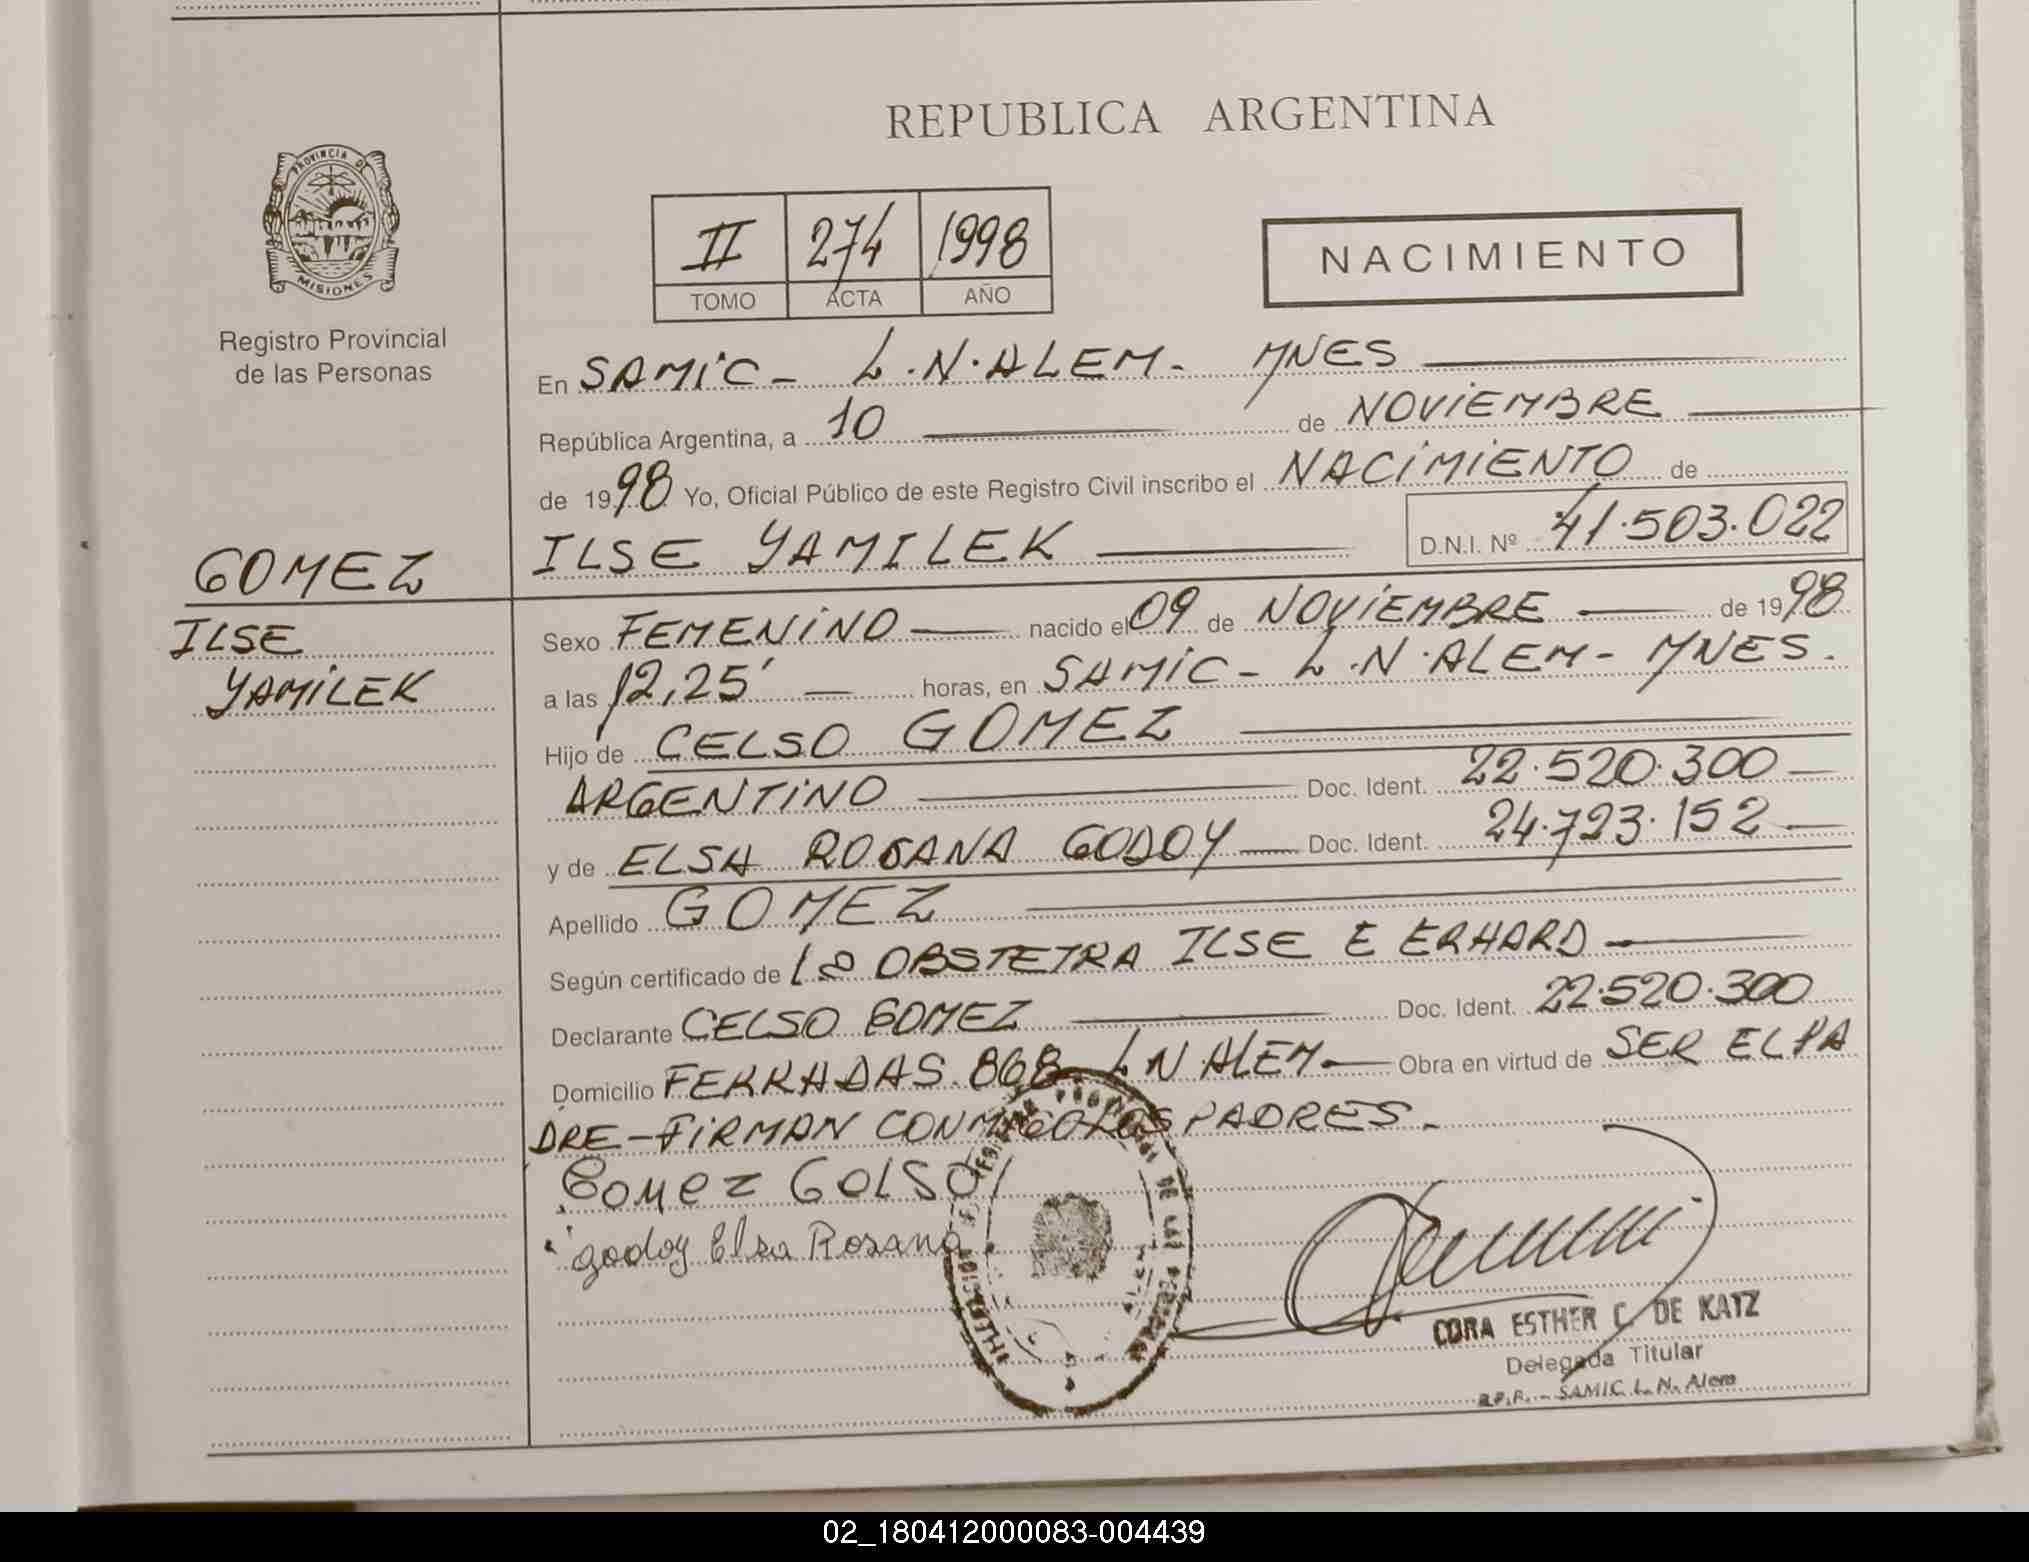 REPUBLICA ARGENTINA
PROVINCIA DE
MISIONES
Registro Provincial
de las Personas
II 274 1998
TOMO ACTA AÑO
NACIMIENTO
En SAMIC - L.N. ALEM - MNES
República Argentina, a 10 de NOVIEMBRE
de 1998 Yo, Oficial Público de este Registro Civil inscribo el NACIMIENTO de
ILSE YAMILEK D.N.I. Nº 41.503.022
GOMEZ
ILSE
YAMILEK
Sexo FEMENINO nacido el 09 de NOVIEMBRE de 1998
a las 12,25' horas, en SAMIC - L.N. ALEM - MNES.
Hijo de CELSO GOMEZ
ARGENTINO Doc. Ident. 22.520.300
y de ELSA ROSANA GODOY Doc. Ident. 24.723.152
Apellido GOMEZ
Según certificado de la OBSTETRA ILSE E ERHARD
Declarante CELSO GOMEZ Doc. Ident. 22.520.300
Domicilio FERRADAS 868 L N ALEM Obra en virtud de SER EL PA
DRE - FIRMAN CONMIGO LOS PADRES.
Gomez CELSO
godoy Elsa Rosana
CORA ESTHER C. DE KATZ
Delegada Titular
R.P.P. - SAMIC L. N. Alem
02_180412000083-004439